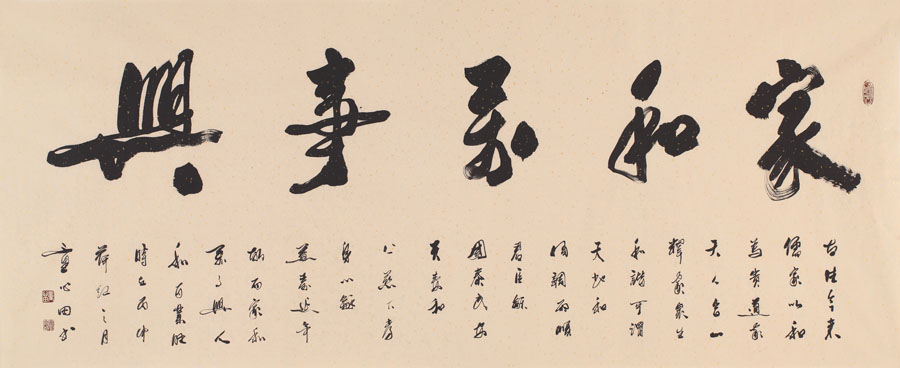 家和萬事興
古往今來
儒家以和
為貴道家
天人合一
釋家眾生
和諧可謂
天地和
風調雨順
君臣龢
國泰民安
夫妻和
上慈下孝
身心龢
益壽延年
故而家和
萬事興人
和百業旺
時在丙申
荷紅之月
童心田書